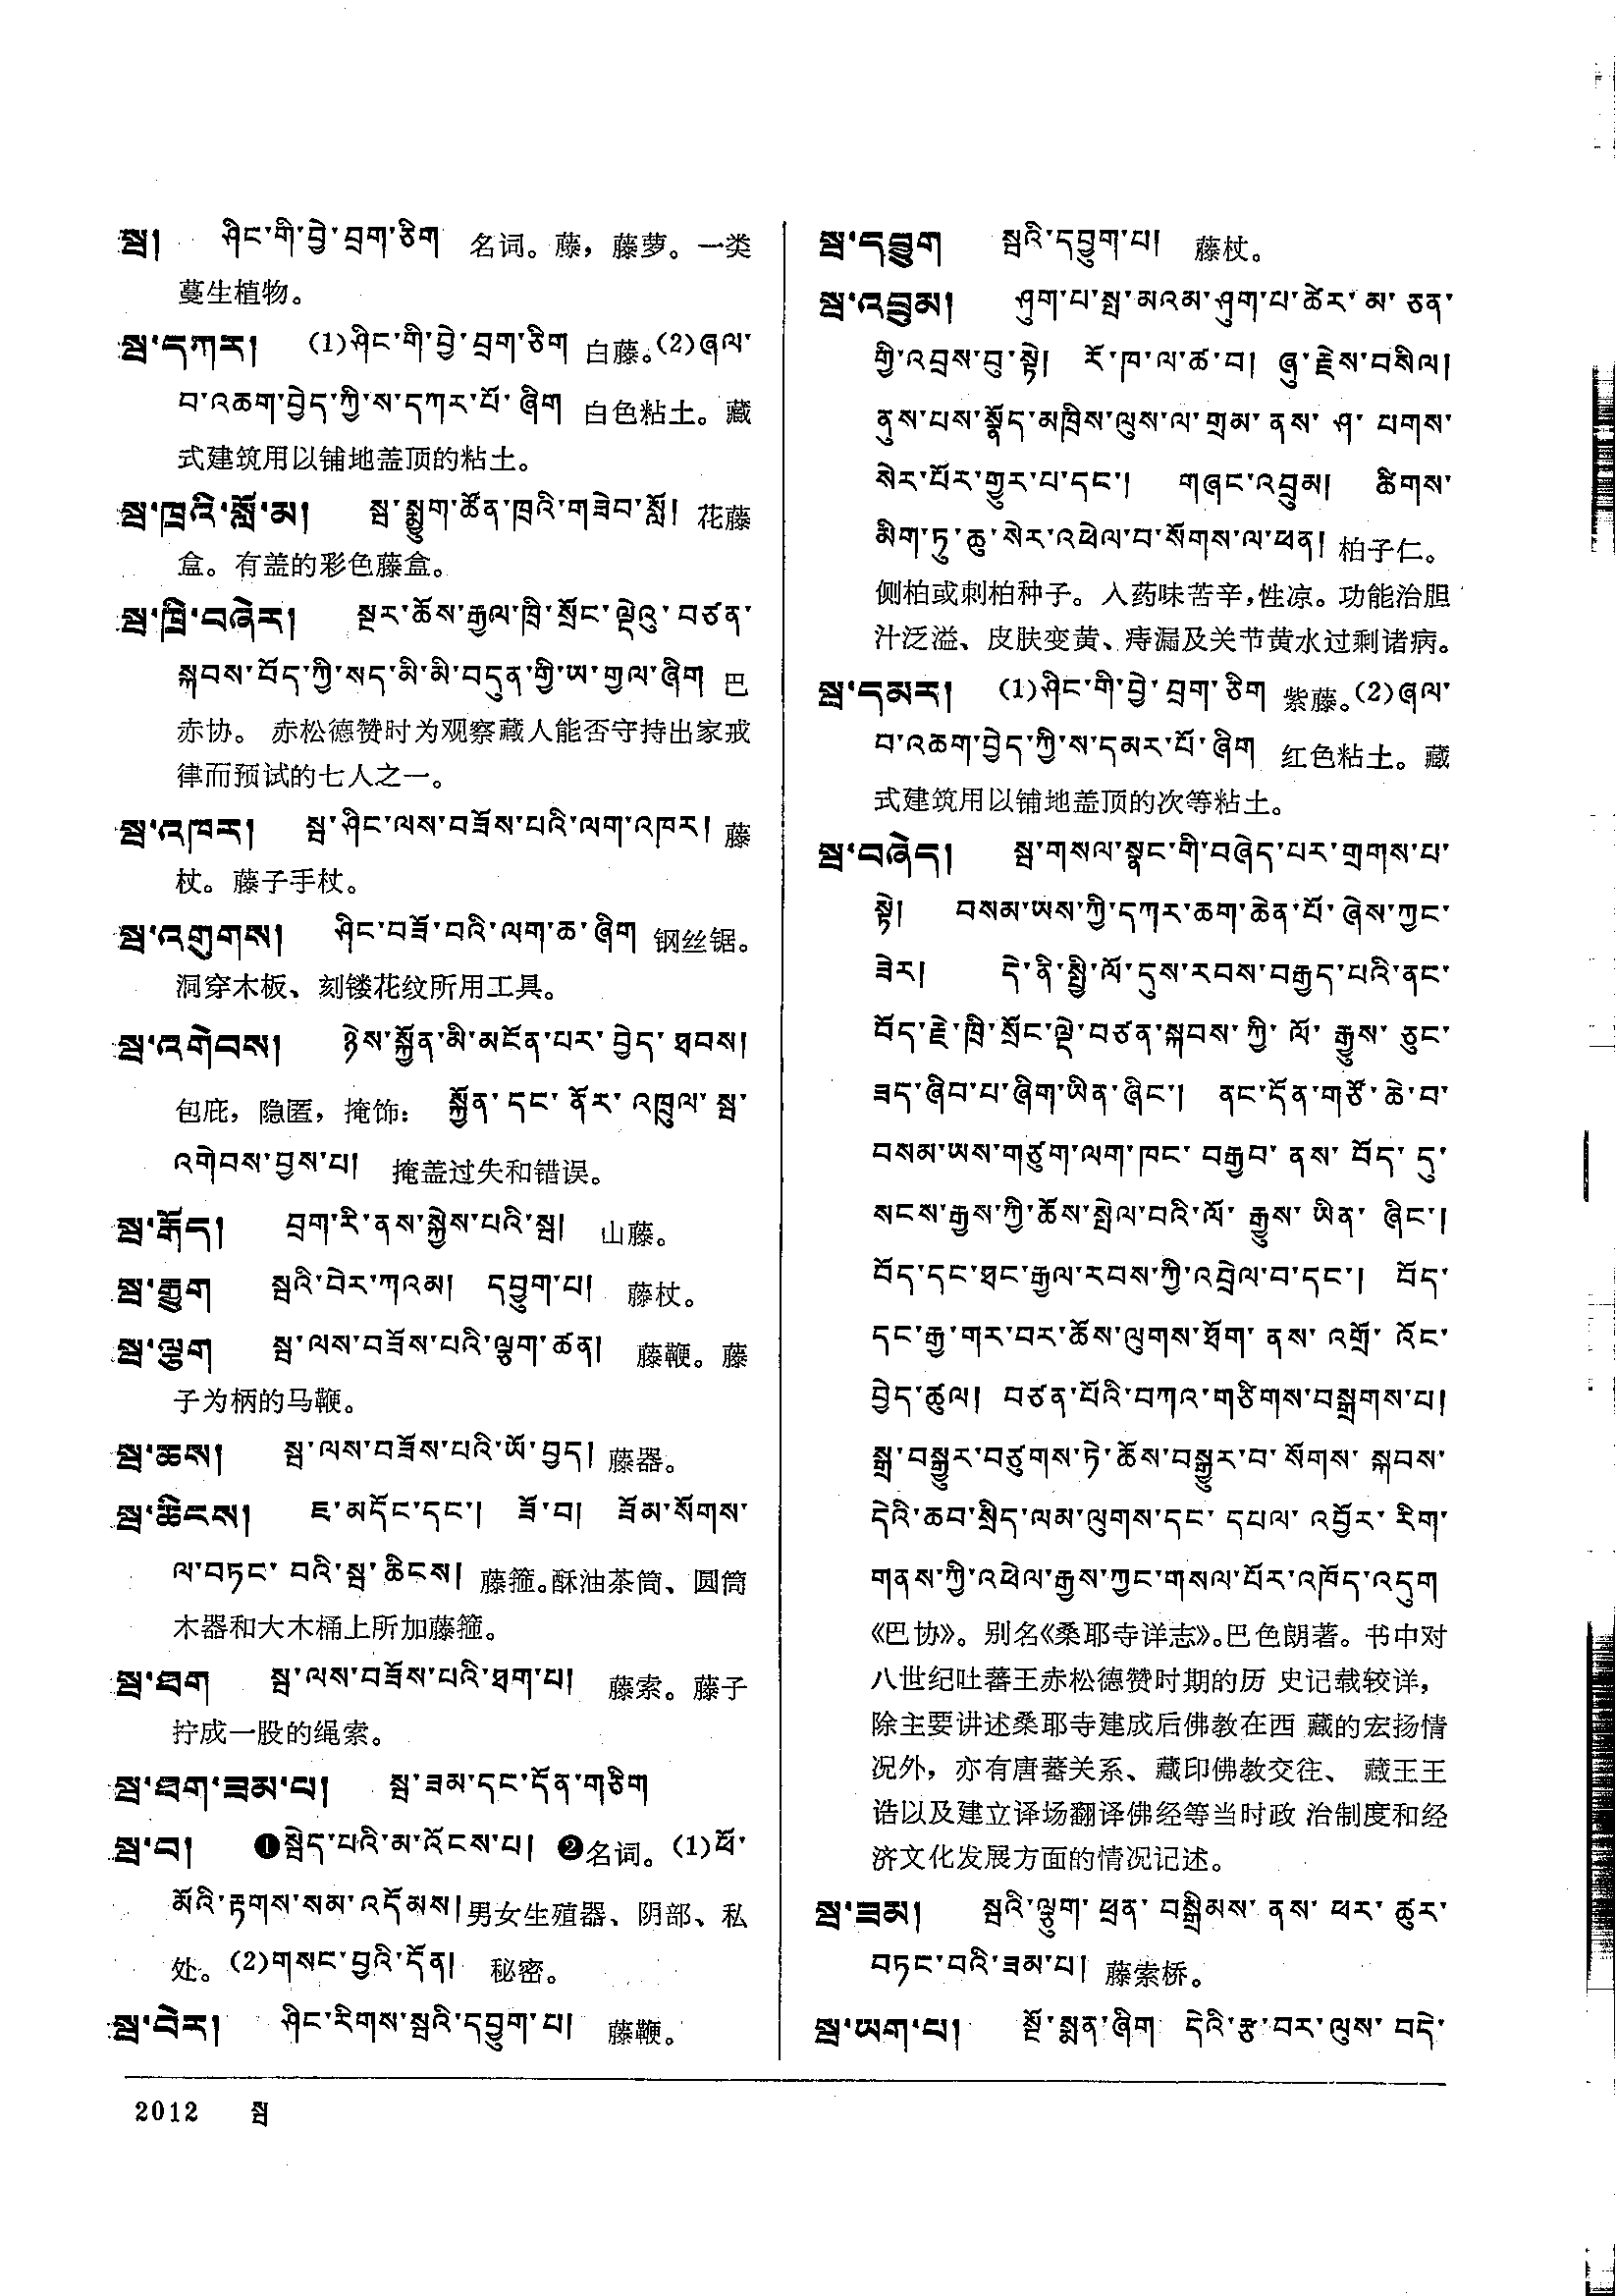 སྦ། ཤིང་གི་བྱེ་བྲག་ཅིག 名词。藤，藤萝。一类
蔓生植物。
སྦ་དཀར། (1)ཤིང་གི་བྱེ་བྲག་ཅིག 白藤。(2)ཞལ་
བ་འཆག་བྱེད་ཀྱི་ས་དཀར་པོ་ཞིག 白色粘土。藏
式建筑用以铺地盖顶的粘土。
སྦ་ཁྲའི་སློ་མ། སྦ་སྨྱུག་ཚོན་ཁྲའི་གཟེབ་སློ། 花藤
盒。有盖的彩色藤盒。
སྦ་ཁྲི་བཞེར། སྔར་ཆོས་རྒྱལ་ཁྲི་སྲོང་ལྡེའུ་བཙན་
སྐབས་བོད་ཀྱི་སད་མི་མི་བདུན་གྱི་ཡ་གྱལ་ཞིག 巴
赤协。 赤松德赞时为观察藏人能否守持出家戒
律而预试的七人之一。
སྦ་འཁར། སྦ་ཤིང་ལས་བཟོས་པའི་ལག་འཁར། 藤
杖。藤子手杖。
སྦ་འགུགས། ཤིང་བཟོ་བའི་ལག་ཆ་ཞིག 钢丝锯。
洞穿木板、刻镂花纹所用工具。
སྦ་འགེབས། ཉེས་སྐྱོན་མི་མངོན་པར་བྱེད་ཐབས།
包庇，隐匿，掩饰： སྐྱོན་དང་ནོར་འཁྲུལ་སྦ་
འགེབས་བྱས་པ། 掩盖过失和错误。
སྦ་རྒོད། བྲག་རི་ནས་སྐྱེས་པའི་སྦ། 山藤。
སྦ་རྒྱུག སྦའི་བེར་ཀའམ། དབྱུག་པ། 藤杖。
སྦ་ལྕུག སྦ་ལས་བཟོས་པའི་ལྕག་ཚན། 藤鞭。藤
子为柄的马鞭。
སྦ་ཆས། སྦ་ལས་བཟོས་པའི་ཡོ་བྱད། 藤器。
སྦ་ཆིངས། ཇ་མདོང་དང་། ཟོ་བ། ཟོམ་སོགས་
ལ་བཏང་བའི་སྦ་ཆིངས། 藤箍。酥油茶筒、圆筒
木器和大木桶上所加藤箍。
སྦ་ཐག སྦ་ལས་བཟོས་པའི་ཐག་པ། 藤索。藤子
拧成一股的绳索。
སྦ་ཐག་ཟམ་པ། སྦ་ཟམ་དང་དོན་གཅིག
སྦ་བ། ❶སྦེད་པའི་མ་འོངས་པ། ❷名词。(1)ཕོ་
མོའི་རྟགས་སམ་འདོམས། 男女生殖器、阴部、私
处。(2)གསང་བྱའི་དོན། 秘密。
སྦ་བེར། ཤིང་རིགས་སྦའི་དབྱུག་པ། 藤鞭。
སྦ་དབྱུག སྦའི་དབྱུག་པ། 藤杖。
སྦ་འབྲུམ། ཤུག་པ་སྤྲ་མའམ་ཤུག་པ་ཚེར་མ་ཅན་
གྱི་འབྲས་བུ་སྟེ། རོ་ཁ་ལ་ཚ་བ། ཞུ་རྗེས་བསིལ།
ནུས་པས་སྣོད་མཁྲིས་ལུས་ལ་གྲམ་ནས་ཤ་པགས་
སེར་པོར་གྱུར་པ་དང་། གཞང་འབྲུམ། ཚིགས་
མིག་ཏུ་ཆུ་སེར་འཕེལ་བ་སོགས་ལ་ཕན། 柏子仁。
侧柏或刺柏种子。入药味苦辛，性凉。功能治胆
汁泛溢、皮肤变黄、痔漏及关节黄水过剩诸病。
སྦ་དམར། (1)ཤིང་གི་བྱེ་བྲག་ཅིག 紫藤。(2)ཞལ་
བ་འཆག་བྱེད་ཀྱི་ས་དམར་པོ་ཞིག 红色粘土。藏
式建筑用以铺地盖顶的次等粘土。
སྦ་བཞེད། སྦ་གསལ་སྣང་གི་བཞེད་པར་གྲགས་པ་
སྟེ། བསམ་ཡས་ཀྱི་དཀར་ཆག་ཆེན་པོ་ཞེས་ཀྱང་
ཟེར། དེ་ནི་སྤྱི་ལོ་དུས་རབས་བརྒྱད་པའི་ནང་
བོད་རྗེ་ཁྲི་སྲོང་ལྡེ་བཙན་སྐབས་ཀྱི་ལོ་རྒྱུས་ཅུང་
ཟད་ཞིབ་པ་ཞིག་ཡིན་ཞིང་། ནང་དོན་གཙོ་ཆེ་བ་
བསམ་ཡས་གཙུག་ལག་ཁང་བརྒྱབ་ནས་བོད་དུ་
སངས་རྒྱས་ཀྱི་ཆོས་སྤེལ་བའི་ལོ་རྒྱུས་ཡིན་ཞིང་།
བོད་དང་ཐང་རྒྱལ་རབས་ཀྱི་འབྲེལ་བ་དང་། བོད་
དང་རྒྱ་གར་བར་ཆོས་ལུགས་ཐོག་ནས་འགྲོ་འོང་
བྱེད་ཚུལ། བཙན་པོའི་བཀའ་གཙིགས་བསྒྲགས་པ།
སྒྲ་བསྒྱུར་བཙུགས་ཏེ་ཆོས་བསྒྱུར་བ་སོགས་སྐབས་
དེའི་ཆབ་སྲིད་ལམ་ལུགས་དང་དཔལ་འབྱོར་རིག་
གནས་ཀྱི་འཕེལ་རྒྱས་ཀྱང་གསལ་པོར་འཁོད་འདུག
《巴协》。别名《桑耶寺详志》。巴色朗著。书中对
八世纪吐蕃王赤松德赞时期的历 史记载较详，
除主要讲述桑耶寺建成后佛教在西 藏的宏扬情
况外，亦有唐蕃关系、藏印佛教交往、 藏王王
诰以及建立译场翻译佛经等当时政 治制度和经
济文化发展方面的情况记述。
སྦ་ཟམ། སྦའི་ལྕུག་ཕྲན་བསྒྲིམས་ནས་ཕར་ཚུར་
བཏང་བའི་ཟམ་པ། 藤索桥。
སྦ་ཡག་པ། སྔོ་སྨན་ཞིག དེའི་རྩ་བར་ལུས་བདེ་
2012 སྦ